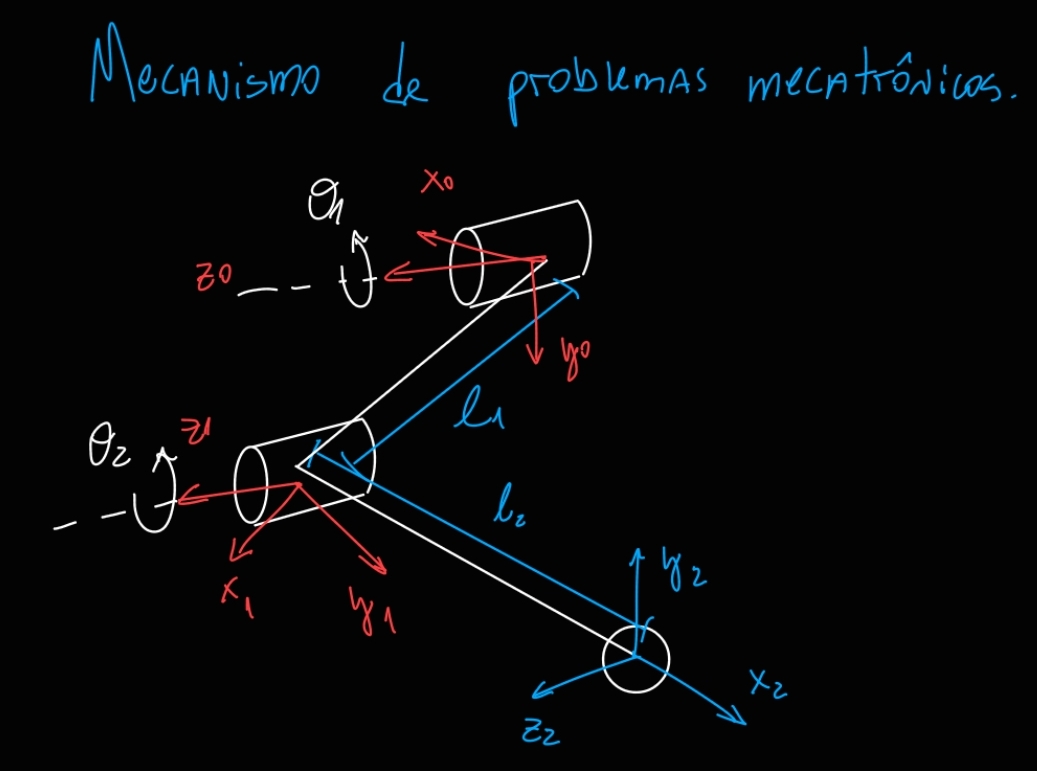 Mecanismo de problemas mecatrônicos.
θ1
x0
z0
y0
l1
θ2
z1
l2
x1
y1
y2
x2
z2